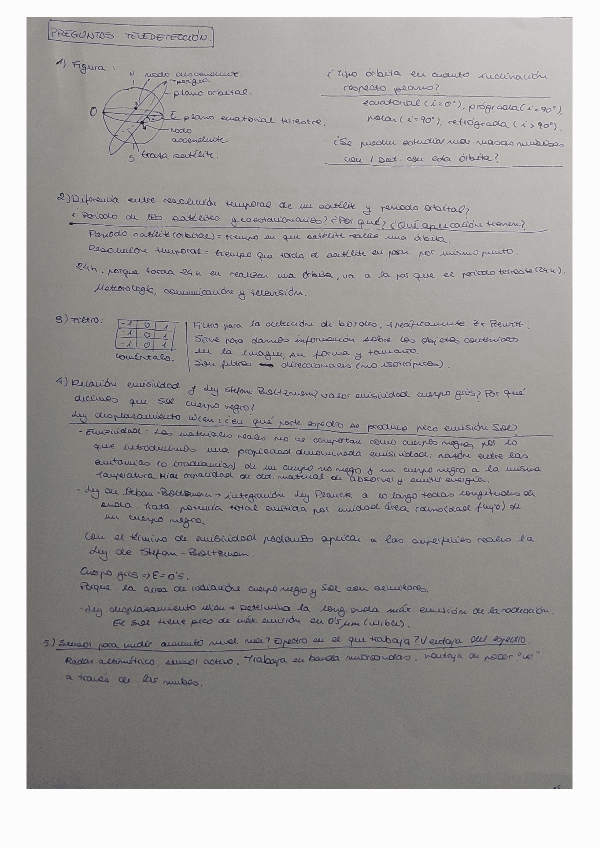 PREGUNTAS TELEDETECCIÓN.
1) Figura:
N nodo descendente.
perigeo
plano orbital.
O
E plano ecuatorial terrestre.
nodo
ascendente.
S traza satélite.
¿Tipo órbita en cuanto inclinación
respecto plano?
ecuatorial (i=0º), prógrada (i<90º),
polar (i=90º), retrógrada (i>90º).
¿Se pueden estudiar
con 1 sat. con esta órbita?
2) Diferencia entre resolución temporal de un satélite y periodo orbital?
• Periodo de los satélites geoestacionarios? ¿Por qué? ¿Qué aplicación tienen?
Periodo satélite (orbital) = tiempo en que satélite realiza una órbita
Resolución temporal = tiempo que tarda el satélite en pasar por mismo punto
24h, porque tarda 24h en realizar una órbita, va a la par que el periodo terrestre (24h).
Meteorología, comunicación y televisión.
3) Filtro:
-1 0 1
-1 0 1
-1 0 1
coméntalo.
Filtro para la detección de bordes, específicamente
Sirve para darnos información sobre los objetos contenidos
en la imagen, su forma y tamaño.
Son filtros direccionales (no isotrópicos).
4) Relación emisividad y ley Stefan-Boltzmann? Valor emisividad cuerpo gris? Por qué
decimos que Sol cuerpo negro?
Ley desplazamiento Wien: ¿en qué parte espectro se produce pico emisión Sol?
- Emisividad: Los materiales reales no se comportan como cuerpos negros, por lo
que introducimos una propiedad denominada emisividad: razón entre las
emitancias (o irradiancias) de un cuerpo no negro y un cuerpo negro a la misma
temperatura. Mide capacidad de del material de absorver y emitir energía.
- Ley de Stefan-Boltzmann → integración ley Planck a lo largo todas longitudes de
onda. Trata potencia total emitida por unidad área (densidad flujo) de
un cuerpo negro.
Con el término de emisividad podamos aplicar a las superficies reales la
ley de Stefan-Boltzmann.
Cuerpo gris => E = 0'5.
Porque la curva de radiación cuerpo negro y Sol son semejantes.
- Ley desplazamiento Wien → Determina la long. onda máx emisión de la radiación.
El Sol tiene pico de máx emisión en 0'5 μm (visible).
5) Sensor para medir aumento nivel mar? Espectro en el que trabaja? Ventaja del espectro
Radar altimétrico, sensor activo. Trabaja en banda microondas, ventaja de poder "ver"
a través de las nubes.